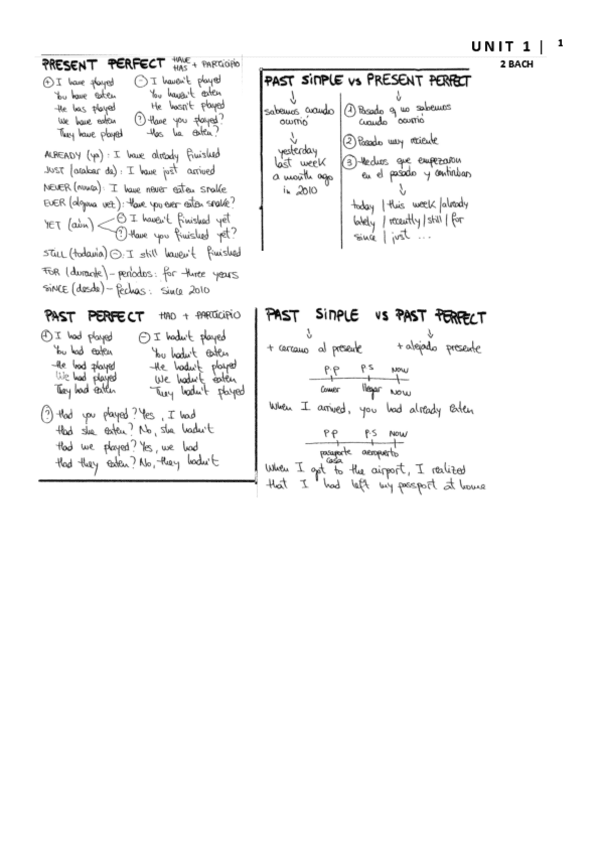 UNIT 1 | 1
2 BACH
PRESENT PERFECT HAVE HAS + PARTICIPIO
+ I have played
You have eaten
He has played
We have eaten
They have played
- I haven't played
You haven't eaten
He hasn't played
? Have you played?
Has he eaten?
ALREADY (ya): I have already finished
JUST (acabar de): I have just arrived
NEVER (nunca): I have never eaten snake
EVER (alguna vez): Have you ever eaten snake?
YET (aún)
- I haven't finished yet
? Have you finished yet?
STILL (todavía) -: I still haven't finished
FOR (durante) - periodos: for three years
SINCE (desde) - fechas: since 2010
PAST SIMPLE vs PRESENT PERFECT
↓
sabemos cuando
ocurrió
↓
yesterday
last week
a month ago
in 2010
↓
1 Pasado q no sabemos
cuando ocurrió
2 Pasado muy reciente
3 Hechos que empezaron
en el pasado y continúan
↓
today | this week | already
lately | recently | still | for
since | just ...
PAST PERFECT HAD + PARTICIPIO
+ I had played
You had eaten
He had played
We had played
They had eaten
- I hadn't played
You hadn't eaten
He hadn't played
We hadn't eaten
They hadn't played
? Had you played? Yes, I had
Had she eaten? No, she hadn't
Had we played? Yes, we had
Had they eaten? No, they hadn't
PAST SIMPLE vs PAST PERFECT
↓ ↓
+ cercano al presente + alejado presente
P.P P.S NOW
comer llegar NOW
When I arrived, you had already eaten
P.P P.S NOW
pasaporte aeropuerto
casa
When I got to the airport, I realized
that I had left my passport at home